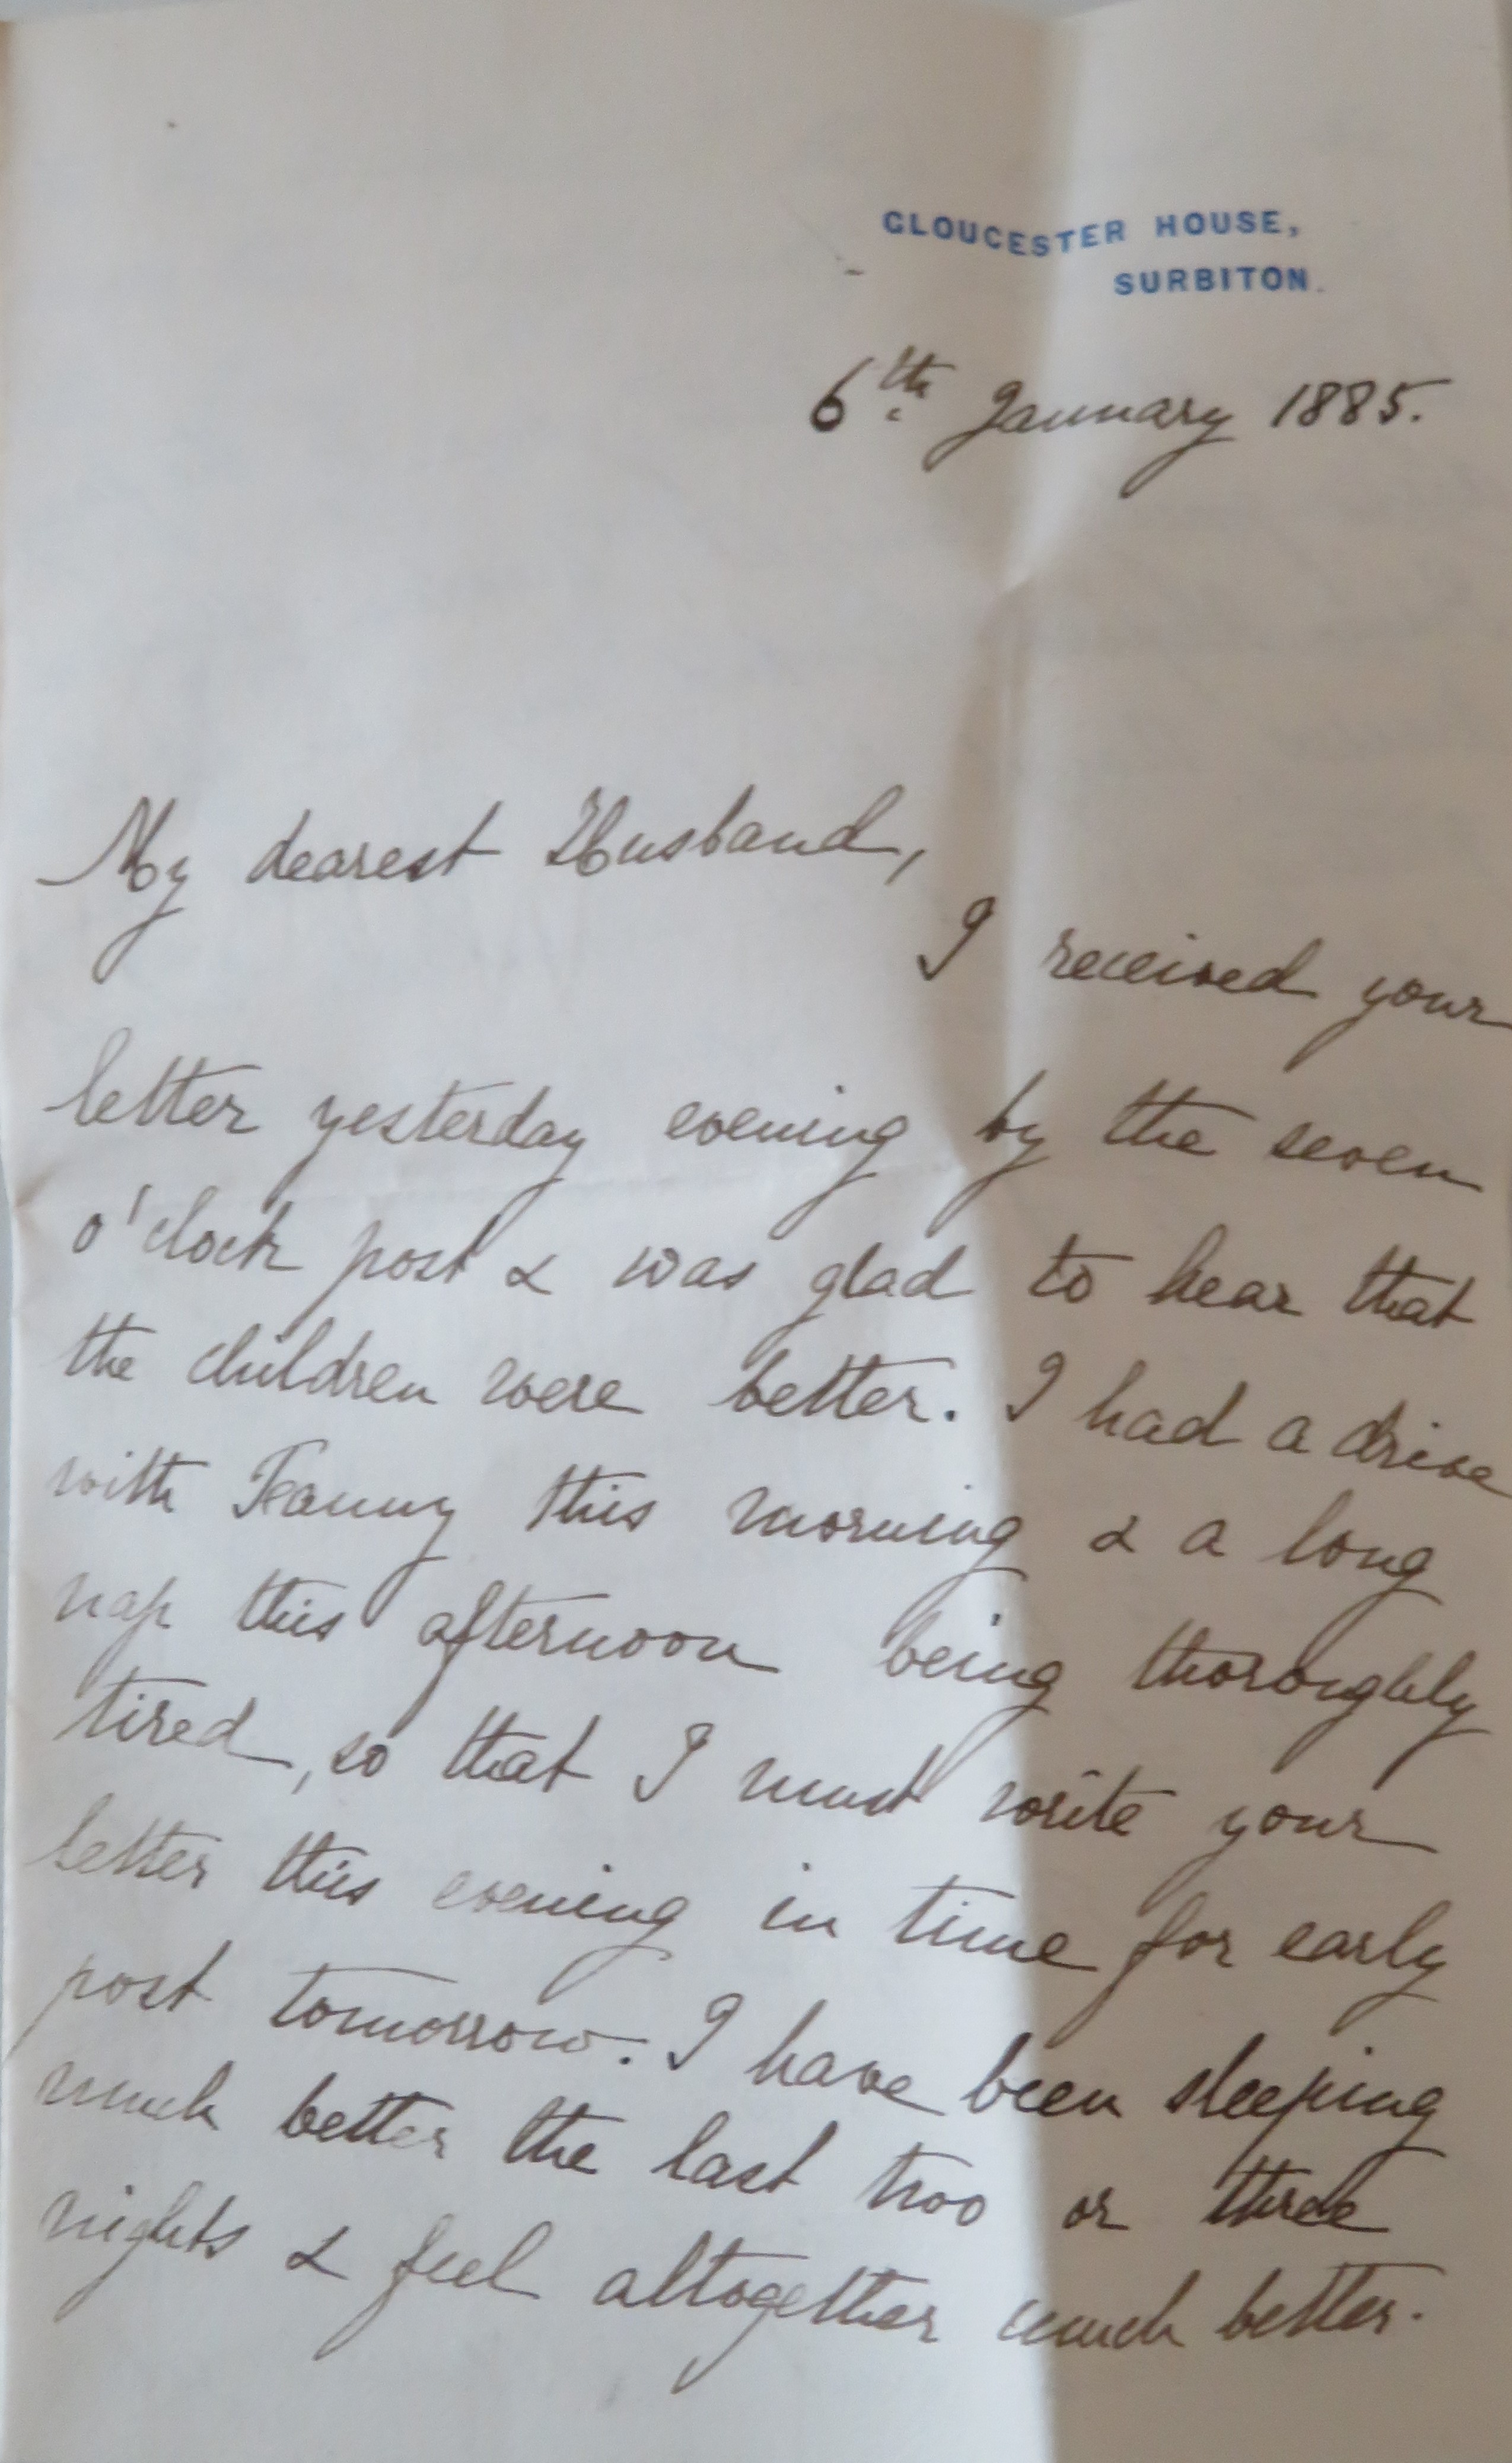 GLOUCESTER HOUSE,
SURBITON.
6th January 1885.
My dearest Husband,
I received your
letter yesterday evening by the seven
o'clock post & was glad to hear that
the children were better. I had a drive
with Fanny this morning & a long
nap this afternoon being thoroughly
tired, so that I must write your
letter this evening in time for early
post tomorrow. I have been sleeping
much better the last two or three
nights & feel altogether much better.